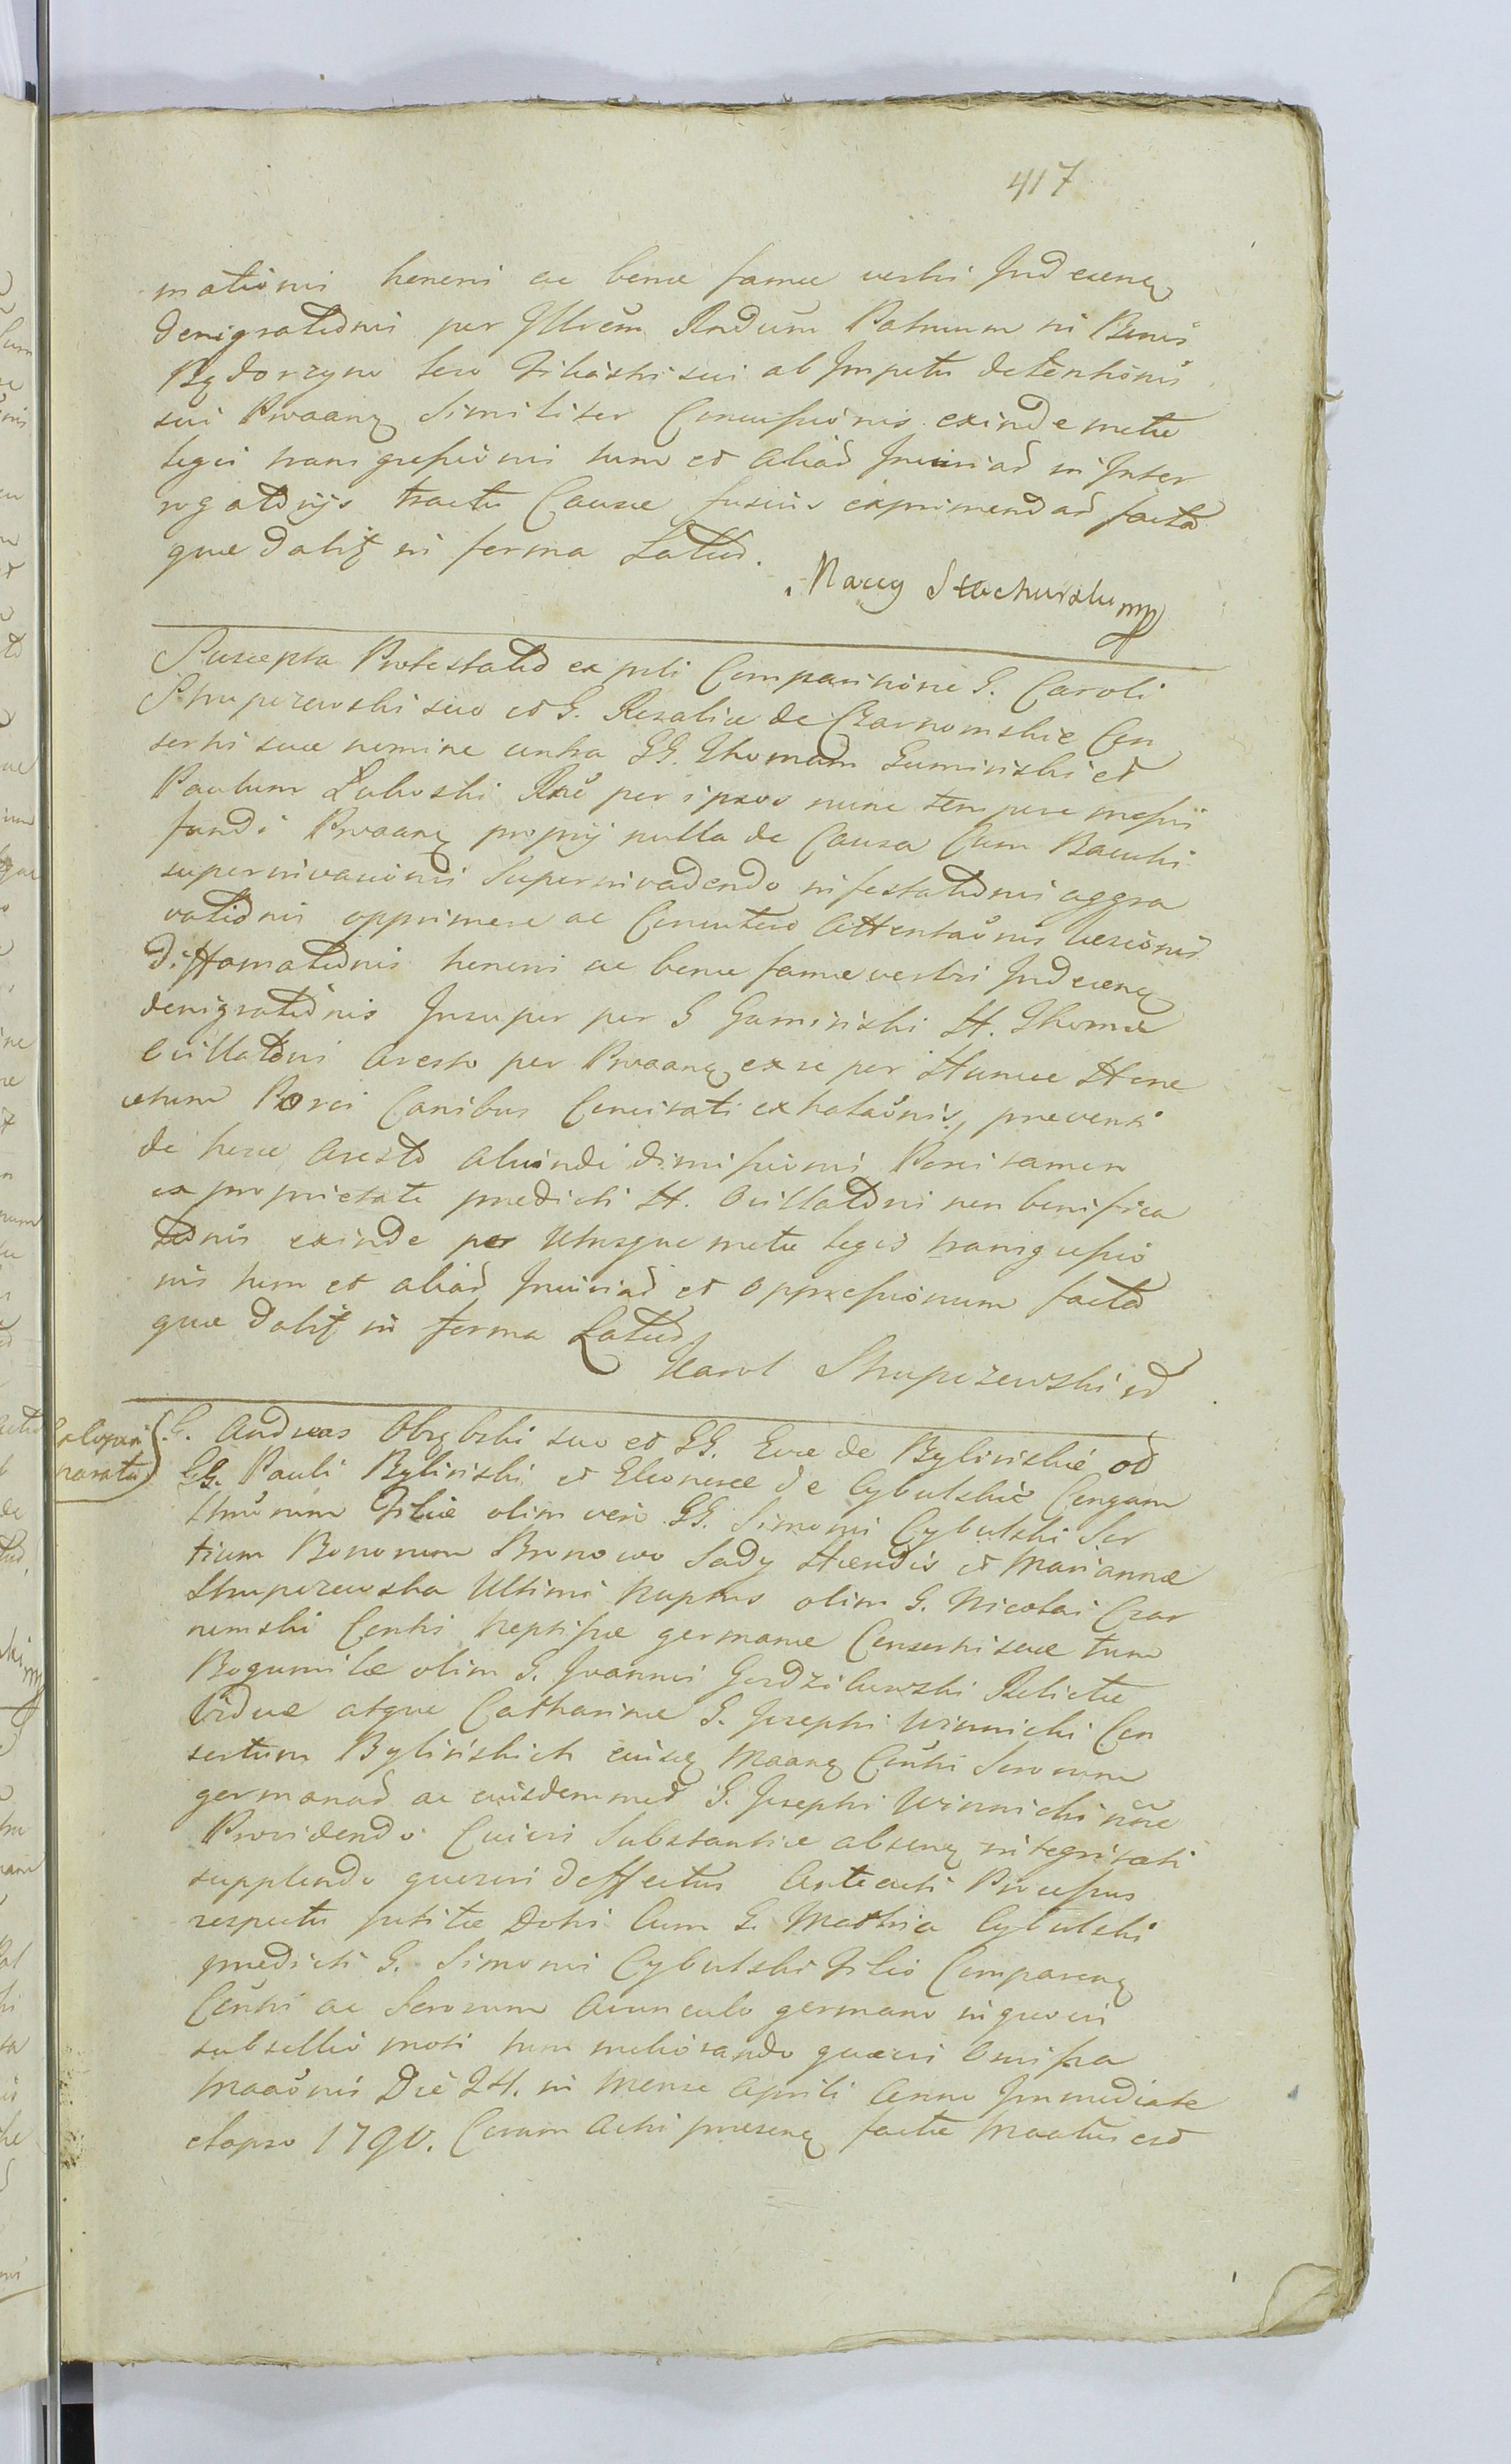 417
mationis honoris ac bonæ famæ vestri Judicieneꝫ
denigrationis per Illrem Rndum Patruum in Bonis
Bądorzyno seu Filiastri sui ab Impetu detentionis
sui Proaaneꝫ Similiter Concussionis exinde metæ
legis transgressionis tum et alias Iniurias in Inter
rogatorijs tractu Causæ fusius exprimendas facta
quæ dabit in forma Latius.
Maciej Stachurski mp
Suscepta Protestatio ex psli Comparitione G. Caroli
Skupczewski suo et G. Rosaliæ de Czarnomskie Con
sortis suæ nomine contra GG. Thomam Guminski et
Paulum Zaluski Rne per ipsos nunc tempore messis
fundi Proaaneꝫ proprij nulla de Causa Cum Baculis
superinvasionis Superinvadendo infestationis aggra
vationis opprimere ac Concutere Attentaōnis læsionis
diffamationis honoris ac bonæ famæ vestri Judicieneꝫ
denigrationis Insuper per G Guminski H. Thomæ
Osillatoni aresto per Proaaneꝫ ex re per Hunce Hone
stum Porci Canibus Concitati extrataōnis, præventi
de hocce Aresto aliunde dimissionis Porci tamen
ex proprietate prædicti H. Osillatoni non bonifica
tionis exinde per Utrosque metæ legis transgressio
nis tum et alias Iniurias et oppressionum facta
quæ dabit in forma Latius
Karol Skupczewski id
G. Andreas Obrębski suo et GG. Evæ de Bylinskie od
GG. Pauli Bylinski et Eleonoræ de Cybulskie Coniugum
Filiæ olim vero GG. Simonis Cybulski Sor
tium Bonorum Bronowo Sady Hændis et Mariannæ
Skupczewska Ultimi Nuptus olim G. Nicolai Czar
nomski Conthi Neptissæ germanæ Consortis suæ tum
Bogumilæ olim G. Joannis Gosdzilewski Relictæ
Viduæ atque Catharinæ G. Josephi Winnicki Con
sortum Bylinskich eiusꝫ Maaneꝫ Conthi Sororum
germanas ac eiusdemmet G. Josephi Winnicki nōre
Providendo Cuivi Substantiæ abseneꝫ integritati
supplendo quosvis deffectus Anteacti Processus
respectu putitæ Dotis Cum G. Mathia Cybulski
prædicti G. Simonis Cybulski Filio Compareneꝫ
Conthi ac Sororum avunculo germano in quovis
subsellio moti tum meliorando quævis Omissa
Maaōnis Die 24. in Mense Aprili Anno Immediate
elapso 1790. Coram Actis præseneꝫ factæ Maatus est